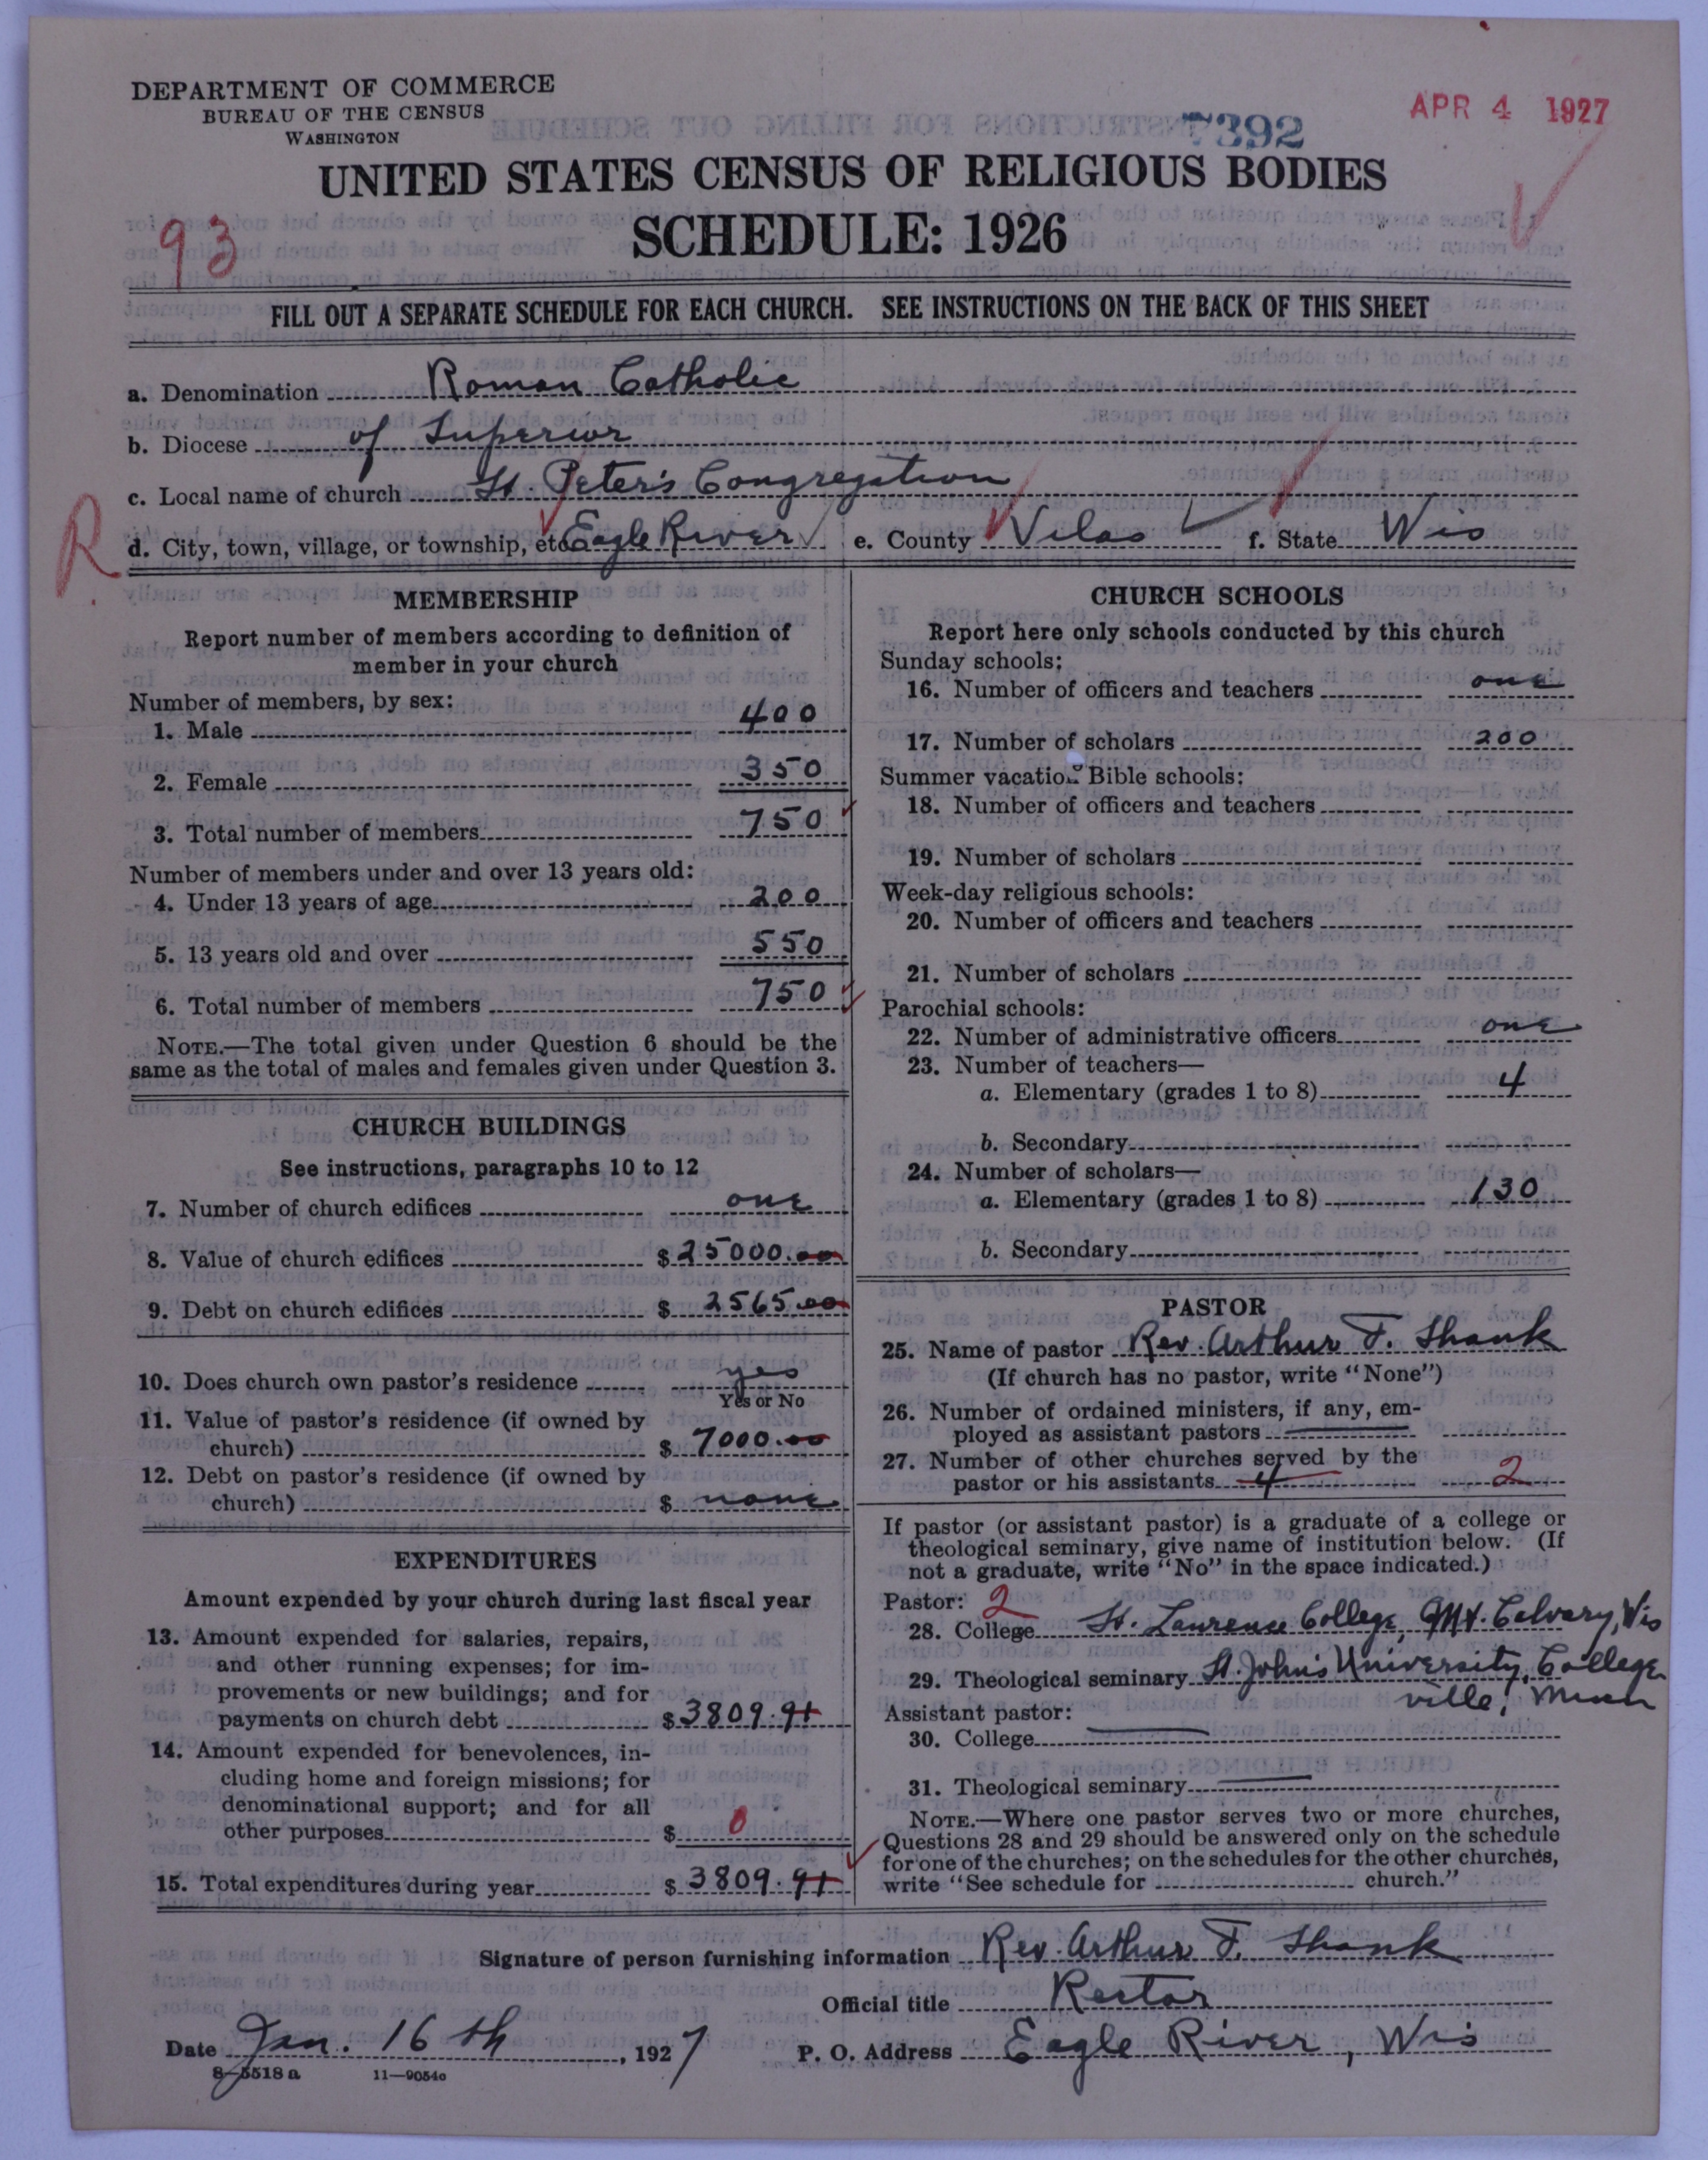 DEPARTMENT OF COMMERCE
BUREAU OF THE CENSUS
WASHINGTON
7392
APR 4 1927
UNITED STATES CENSUS OF RELIGIOUS BODIES
SCHEDULE: 1926
93
FILL OUT A SEPARATE SCHEDULE FOR EACH CHURCH. SEE INSTRUCTIONS ON THE BACK OF THIS SHEET
a. Denomination Roman Catholic
b. Diocese of Superior
c. Local name of church St. Peter's Congregation
R
d. City, town, village, or township, etc. Eagle River e. County Vilas f. State Wis
MEMBERSHIP
Report number of members according to definition of
member in your church
Number of members, by sex:
1. Male 400
2. Female 350
3. Total number of members 750
Number of members under and over 13 years old:
4. Under 13 years of age 200
5. 13 years old and over 550
6. Total number of members 750
NOTE.—The total given under Question 6 should be the
same as the total of males and females given under Question 3.
CHURCH BUILDINGS
See instructions, paragraphs 10 to 12
7. Number of church edifices one
8. Value of church edifices $ 25000.00
9. Debt on church edifices $ 2565.00
10. Does church own pastor's residence yes
Yes or No
11. Value of pastor's residence (if owned by
church) $ 7000.00
12. Debt on pastor's residence (if owned by
church) $ none
EXPENDITURES
Amount expended by your church during last fiscal year
13. Amount expended for salaries, repairs,
and other running expenses; for im-
provements or new buildings; and for
payments on church debt $ 3809.91
14. Amount expended for benevolences, in-
cluding home and foreign missions; for
denominational support; and for all
other purposes $ 0
15. Total expenditures during year $ 3809.91
CHURCH SCHOOLS
Report here only schools conducted by this church
Sunday schools:
16. Number of officers and teachers one
17. Number of scholars 200
Summer vacation Bible schools:
18. Number of officers and teachers
19. Number of scholars
Week-day religious schools:
20. Number of officers and teachers
21. Number of scholars
Parochial schools:
22. Number of administrative officers one
23. Number of teachers—
a. Elementary (grades 1 to 8) 4
b. Secondary
24. Number of scholars—
a. Elementary (grades 1 to 8) 130
b. Secondary
PASTOR
25. Name of pastor Rev. Arthur F. Shank
(If church has no pastor, write "None")
26. Number of ordained ministers, if any, em-
ployed as assistant pastors
27. Number of other churches served by the
pastor or his assistants 4 2
If pastor (or assistant pastor) is a graduate of a college or
theological seminary, give name of institution below. (If
not a graduate, write "No" in the space indicated.)
Pastor: 2
28. College St. Laurence College, Mt. Calvary, Wis
29. Theological seminary St. John's University, College
ville, Minn
Assistant pastor:
30. College
31. Theological seminary
NOTE.—Where one pastor serves two or more churches,
Questions 28 and 29 should be answered only on the schedule
for one of the churches; on the schedules for the other churches,
write "See schedule for church."
Signature of person furnishing information Rev. Arthur F. Shank
Official title Rector
Date Jan. 16th, 1927 P. O. Address Eagle River, Wis
8-5518a 11—9054o